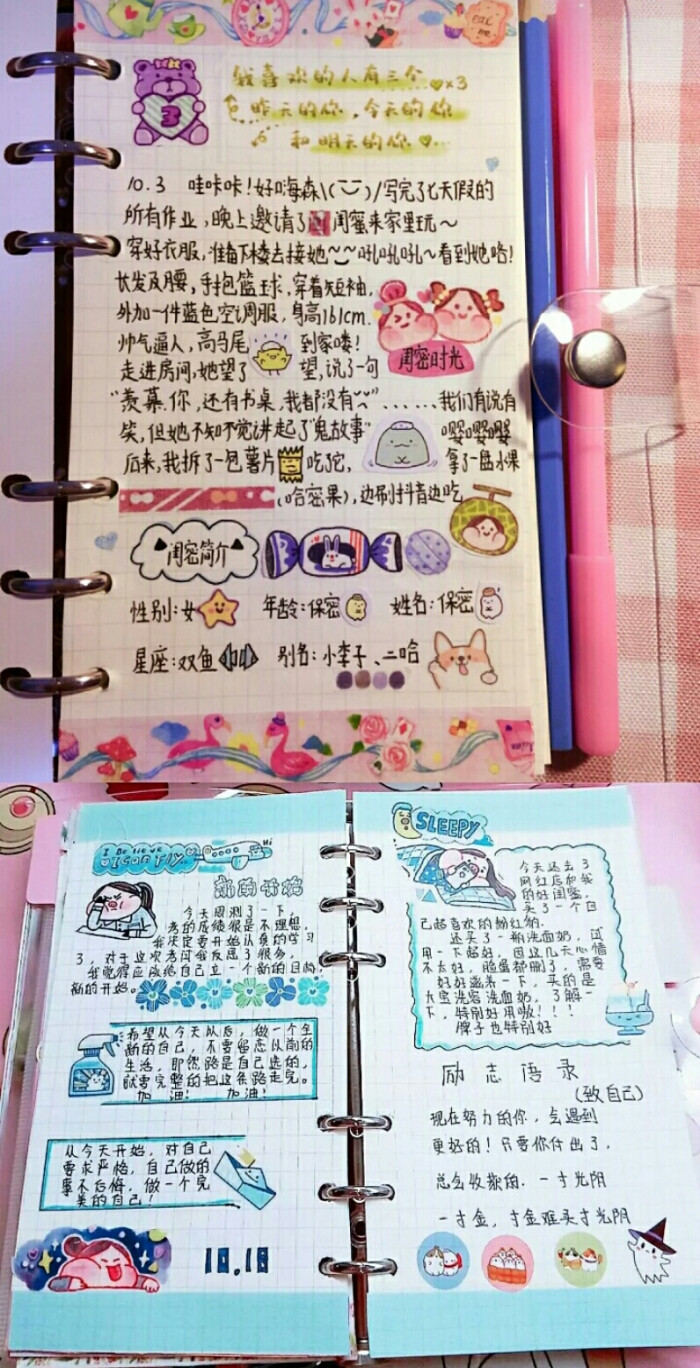 eat
me
3
我喜欢的人有三个 ♥x3
昨天的你，今天的你
和明天的你♥...
10.3 哇咔咔！好嗨森\(￣︶￣)/写完了七天假的
所有作业，晚上邀请了 闺蜜来家里玩～
穿好衣服，准备下楼去接她～～吼吼吼～看到她咯！
长发及腰，手抱篮球，穿着短袖，
外加一件蓝色空调服，身高161cm.
帅气逼人，高马尾 到家喽！
走进房间，她望了 望，说了一句
闺密时光
“羡慕你，还有书桌，我都没有”......我们有说有
笑，但她不知不觉讲起了“鬼故事” 嘤嘤嘤
后来，我拆了一包薯片 吃了它， 拿了一盘水果
(哈密果)，边刷抖音边吃
闺密简介
性别：女 年龄：保密 姓名：保密
星座：双鱼 别名：小李子、二哈
I Believe
I Can Fly
Hi
新的开始
今天跟测了一下，
考的成绩很是不理想，
我决定要开始认真的学习
了，对于这次考试我反思了很多，
我觉得应该给自己立一个新的目标，
新的开始。
希望从今天以后，做一个全
新的自己，不要留恋从前的
生活，即然路是自己选的，
就要完整的把这条路走完。
加油！ 加油！
从今天开始，对自己
要求严格，自己做的
事不后悔，做一个完
美的自己！
10.18
SLEEPY
今天还去了
网红店和我
的好闺蜜，
买了一个自
己超喜欢的粉红豹，
还买了一瓶洗面奶，试
用一下超好，因这几天心情
不太好，脸蛋都刪了，需要
好好滋养一下，买的是
大宝洗容洗面奶，了解一
下，特别好用嗷！！！
牌子也特别好
励志语录
(致自己)
现在努力的你，会遇到
更好的！只要你付出了，
总会收获的．一寸光阴
一寸金，寸金难买寸光阴